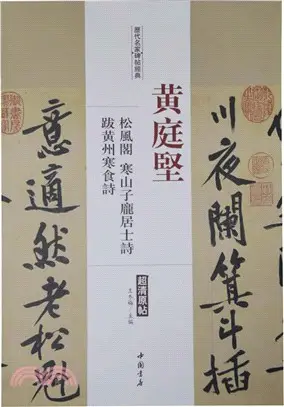 川夜闌箕斗插
歷代名家碑帖經典
黄庭堅
松風閣 寒山子龐居士詩
跋黄州寒食詩
超清原帖
王冬梅·主編
中國書店
意適然老松魁